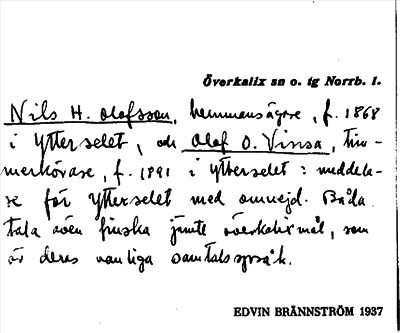 Överkalix sn o. tg Norrb. l.
Nils H. Olofsson, hemmansägare, f. 1868
i Ytterselet, och Olof O. Vinsa, tim-
merkörare, f. 1891 i Ytterselet: meddela-
re för Ytterselet med omnejd. Båda
tala även finska jämte överkalixmål, som
är deras vanliga samtalsspråk.
EDVIN BRÄNNSTRÖM 1937